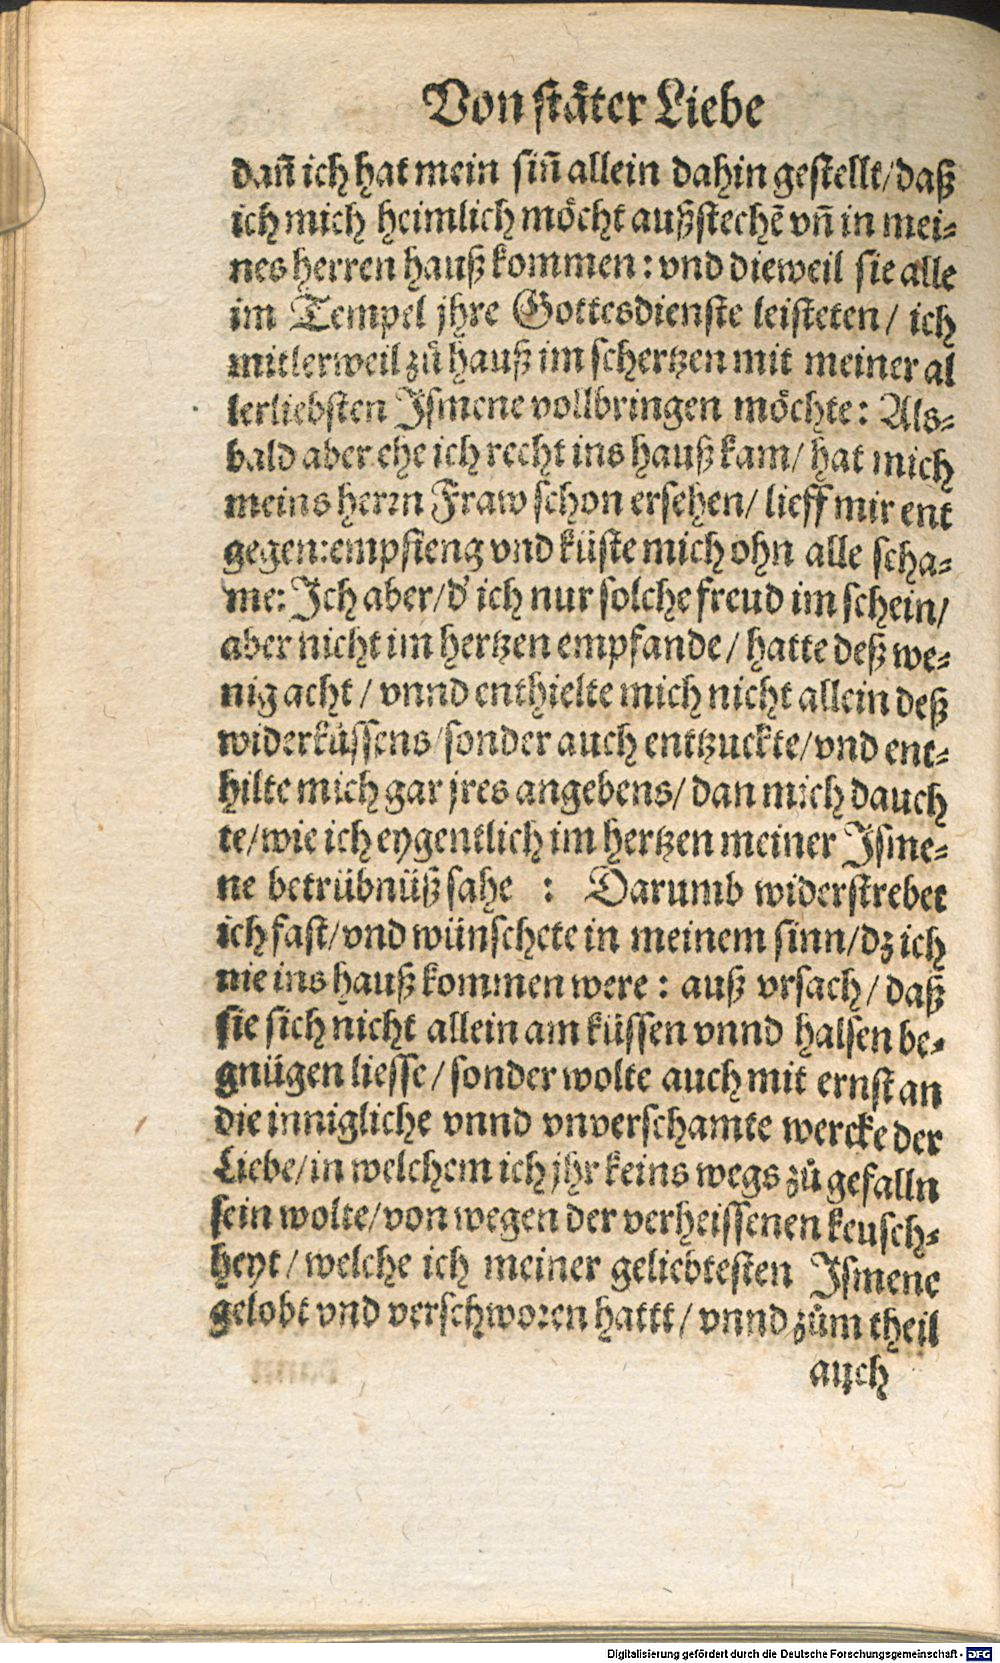 Von ståter Liebe
dañ ich hat mein siñ allein dahin gestellt/daß
ich mich heimlich möcht außstechē vñ in mei-
nes herren hauß kommen: vnd dieweil sie alle
im Tempel jhre Gottesdienste leisteten/ ich
mitlerweil zů hauß im schertzen mit meiner al
lerliebsten Ismene vollbringen möchte: Als-
bald aber ehe ich recht ins hauß kam/ hat mich
meins herrn Fraw schon ersehen/ lieff mir ent
gegen:empfieng vnd küste mich ohn alle scha-
me: Ich aber/d' ich nur solche freud im schein/
aber nicht im hertzen empfande/ hatte deß we-
nig acht/ vnnd enthielte mich nicht allein deß
widerküssens/sonder auch entzuckte/vnd ent-
hilte mich gar jres angebens/ dan mich dauch
te/wie ich eygentlich im hertzen meiner Isme-
ne betrübnüß sahe : Darumb widerstrebet
ich fast/vnd wünschete in meinem sinn/dz ich
nie ins hauß kommen were: auß vrsach/ daß
sie sich nicht allein am küssen vnnd halsen be-
gnügen liesse/ sonder wolte auch mit ernst an
die innigliche vnnd vnverschamte wercke der
Liebe/in welchem ich jhr keins wegs zů gefalln
sein wolte/von wegen der verheissenen keusch-
heyt/ welche ich meiner geliebtesten Ismene
gelobt vnd verschworen hattt/ vnnd zům theil
auch
Digitalisierung gefördert durch die Deutsche Forschungsgemeinschaft - DFG